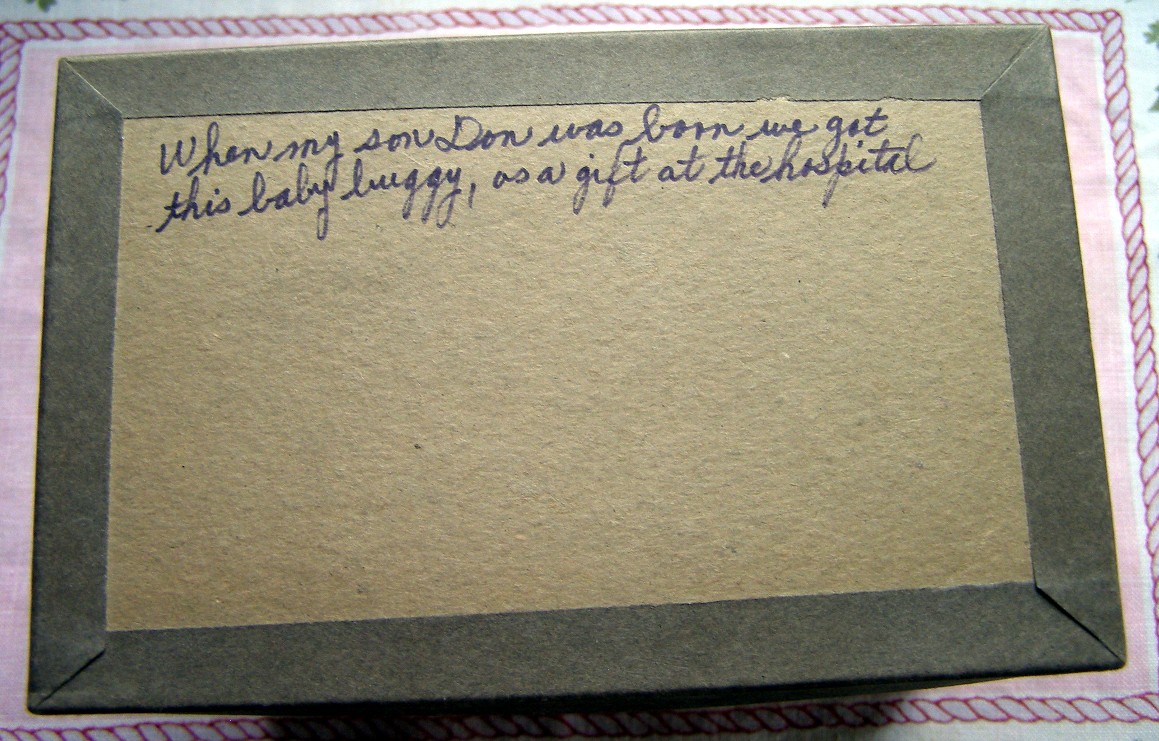 When my son Don was born we got
this baby buggy, as a gift at the hospital